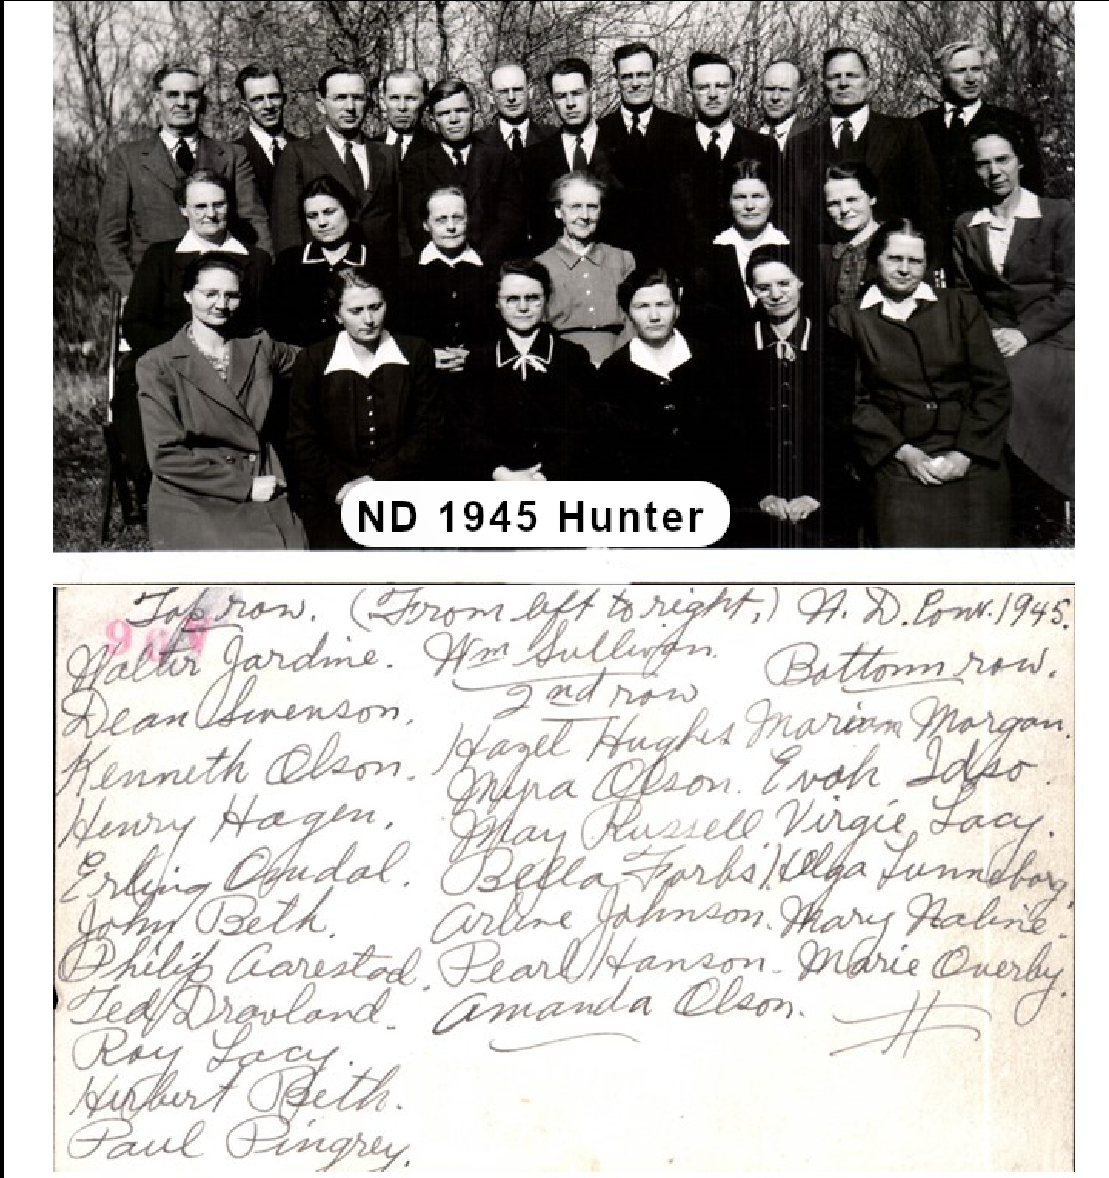 ND 1945 Hunter
Top row. (From left to right.) N. D. Conv. 1945.
Walter Jardine.
Dean Swenson.
Kenneth Olson.
Henry Hagen.
Erling Omdal.
John Beth.
Philip Aarestad.
Ted Dravland.
Roy Lacy.
Herbert Beth.
Paul Pingrey.
Wm Sullivan.
2nd row
Hazel Hughes
Myra Olson.
May Russell
Bella Forbs
Arline Johnson.
Pearl Hanson.
Amanda Olson.
Bottom row.
Marium Morgan.
Evah Idso.
Virgie Lacy.
Olga Lunneborg.
Mary Naline.
Marie Overby.